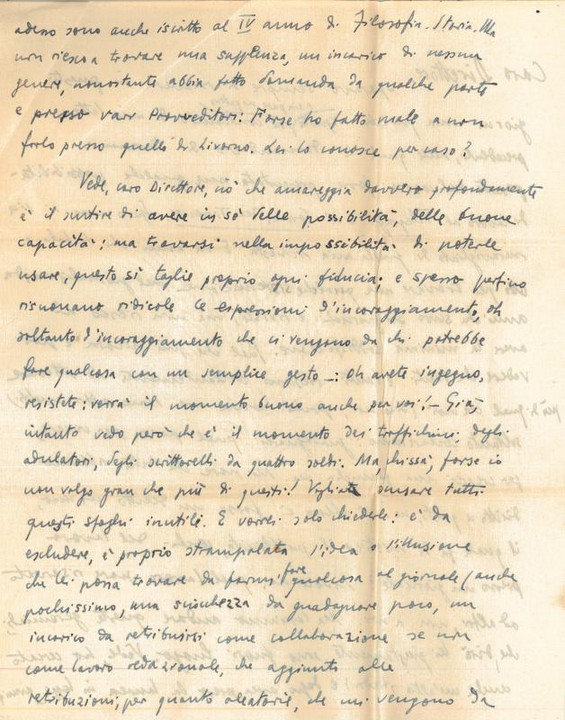 adesso sono anche iscritto al IV anno di Filosofia-Storia. Ma
non riesco a trovare una supplenza, un incarico di nessun
genere, nonostante abbia fatto domanda da qualche parte
e presso vari Provveditori. Forse ho fatto male a non
farlo presso quello di Livorno. Lei lo conosce per caso?
Vede, caro Direttore, ciò che amareggia davvero profondamente
è il sentire di avere in sé delle possibilità, delle buone
capacità; ma trovarsi nella impossibilità di poterle
usare, questo sì toglie proprio ogni fiducia: e spesso perfino
risuonano ridicole le espressioni d'incoraggiamento, oh
soltanto d'incoraggiamento che ci vengono da chi potrebbe
fare qualcosa con un semplice gesto -: Oh avete ingegno,
resistete: verrà il momento buono anche per voi! - Già,
intanto vedo però che è il momento dei trafficini, degli
adulatori, degli scrittorelli da quattro soldi. Ma chissà, forse io
non valgo gran che più di questi! Vogliate scusare tutti
questi sfoghi inutili. E vorrei solo chiederle: è da
escludere, è proprio strampalata l'idea o l'illusione
che Lei possa trovare da farmi fare qualcosa al giornale (anche
pochissimo, una sciocchezza da guadagnare poco, un
incarico da retribuirsi come collaborazione se non
come lavoro redazionale, che aggiunto alle
retribuzioni, per quanto aleatorie, che mi vengono da